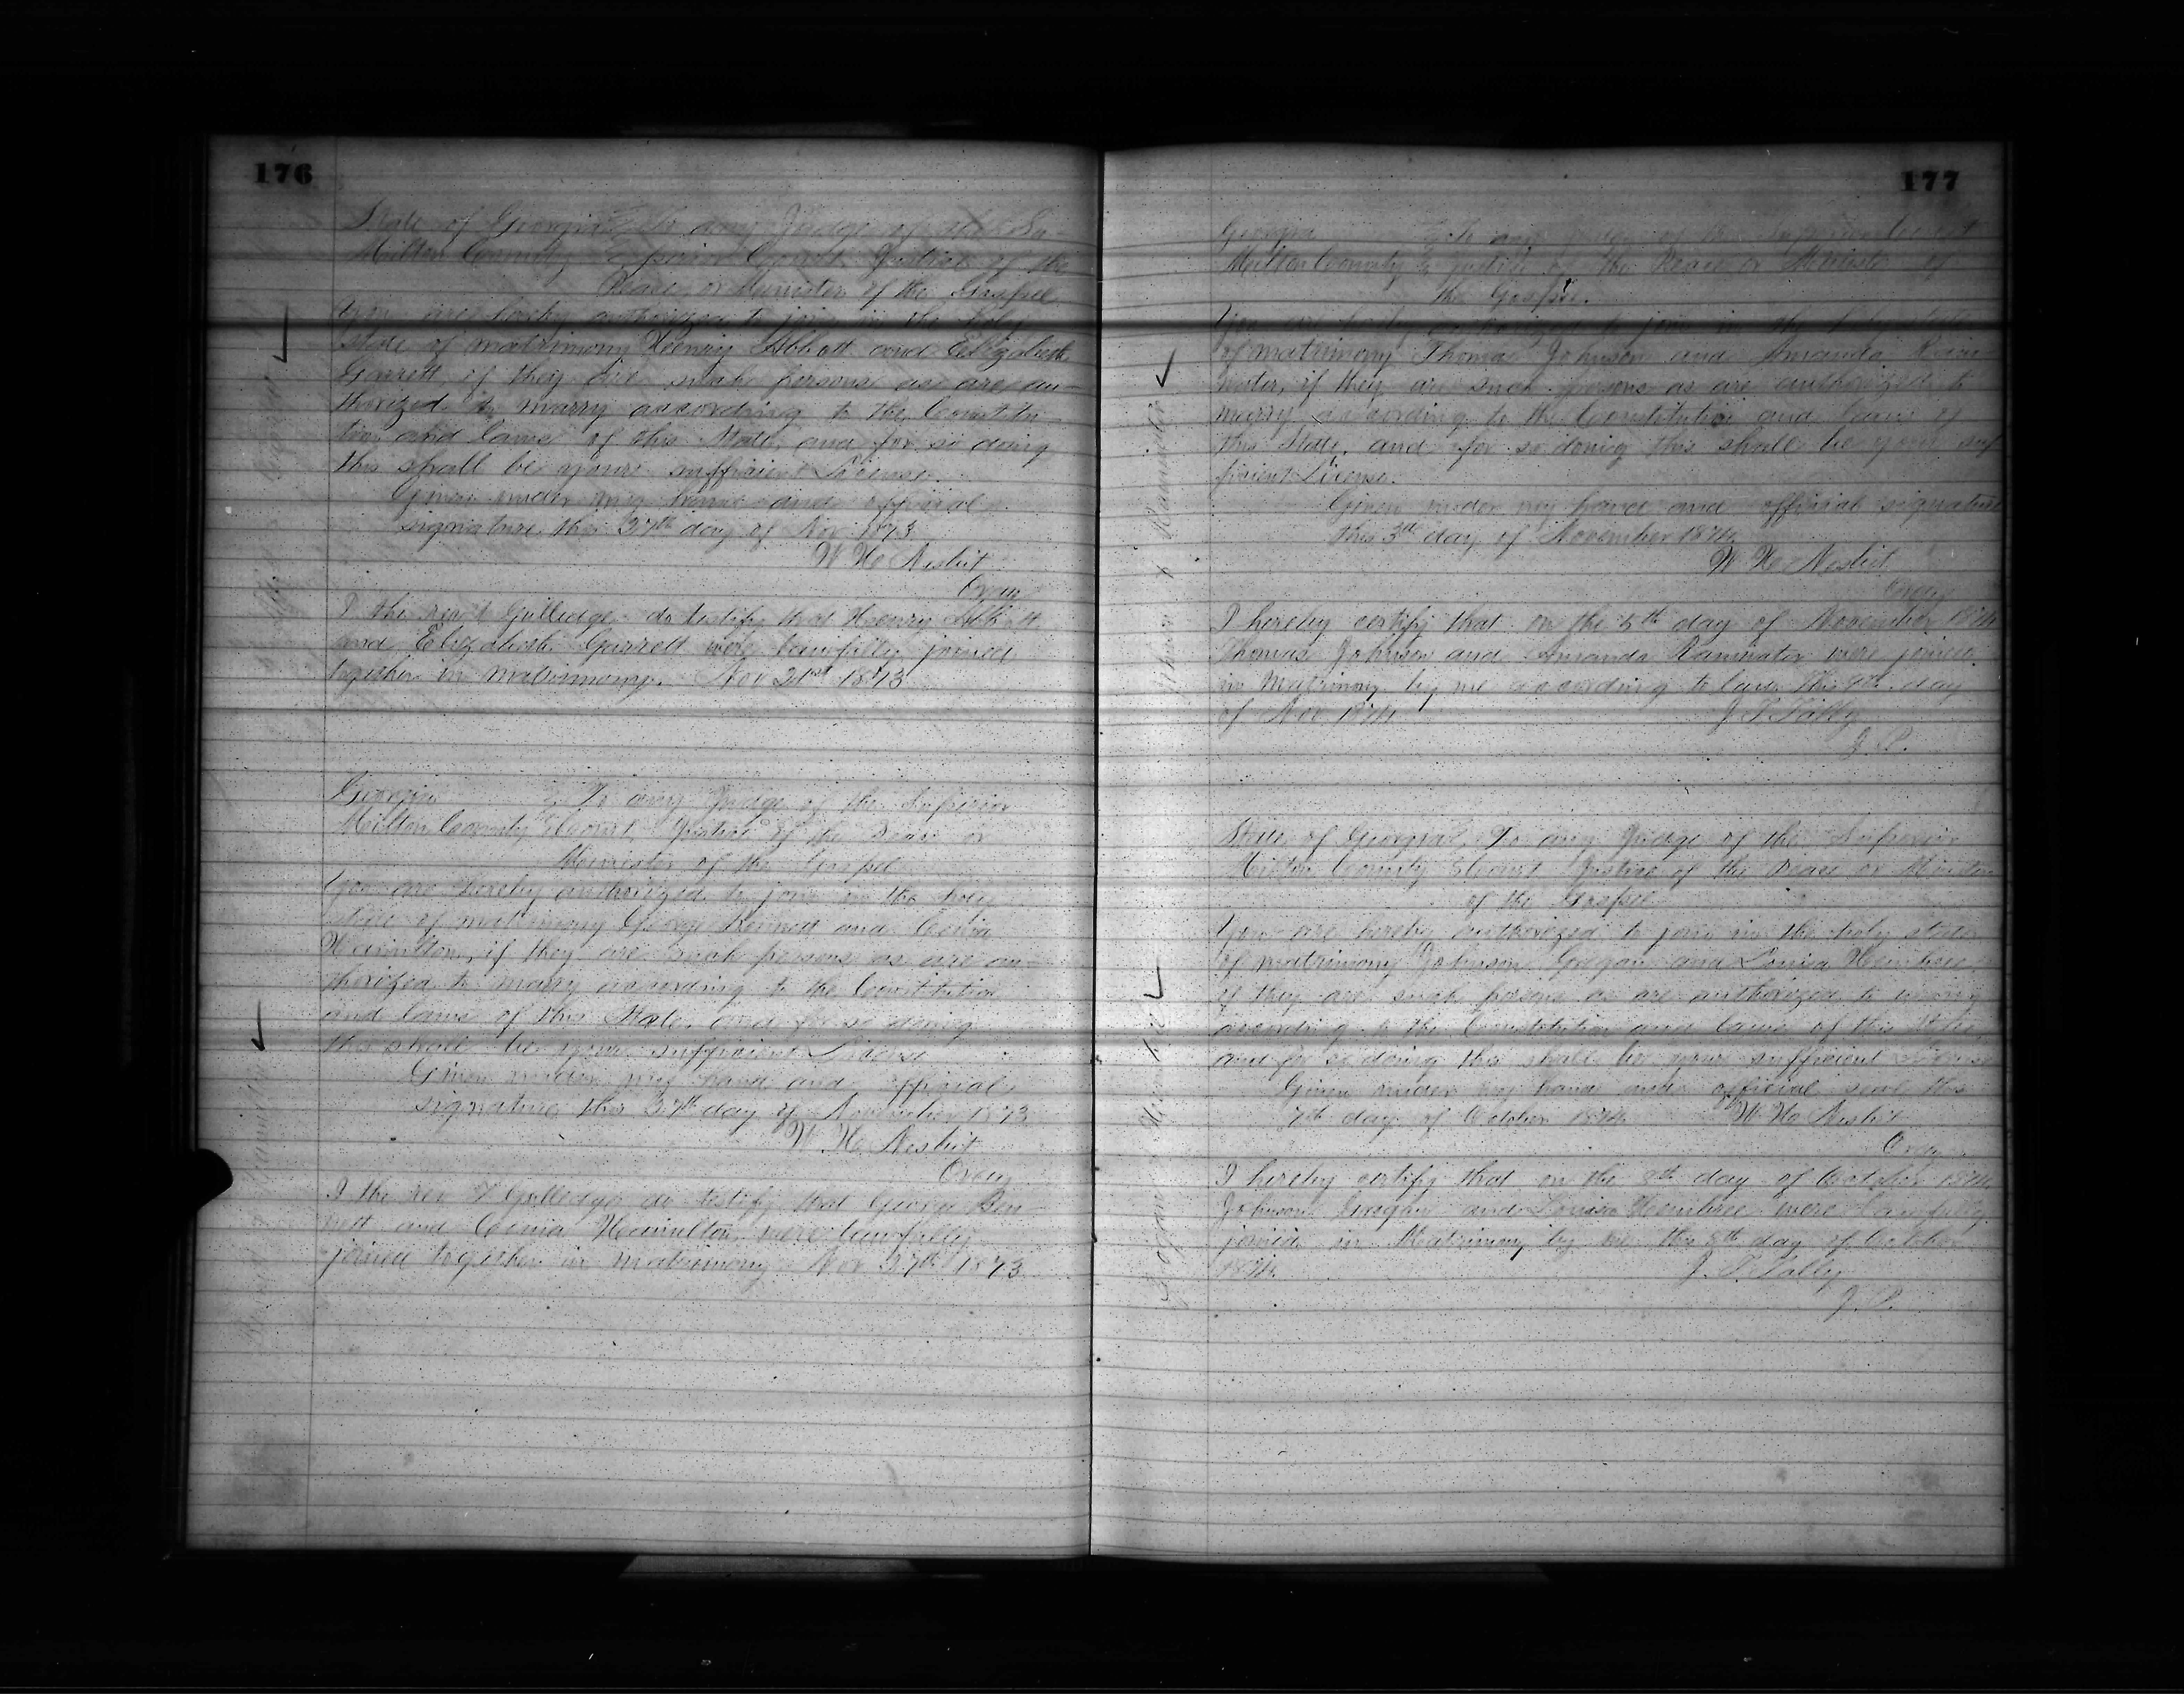 176
State of Georgia To any Judge of the Su-
Milton County perior Court, Justice of the
Peace, or Minister of the Gospel
You are hereby authorized to join in the holy
state of matrimony Henry Abbott and Elizabeth
Garrett, if they are such persons as are au-
thorized to marry according to the Constitu-
tion and laws of this State, and for so doing
this shall be youre sufficient License.
Given under my hand and official
signature this 27th day of Nov 1873
W H Nesbit
Ordy
I the rev Gulledge do testify that Henry Abbott
and Elizabeth Garrett were lawfully joined
together in matrimony. Nov 21st 1873
Georgia To any Judge of the Superior
Milton County Court, Justice of the Peace or
Minister of the Gospel
You are hereby authorized to join in the holy
state of matrimony George Bennett and
Hamilton, if they are such persons as are au-
thorized to marry according to the Constitution
and laws of this State, and for so doing
this shall be your sufficient License
Given under my hand and official
signature this 27th day of November 1873
W. H. Nesbit
Ordy
I the rev Gulledge do testify that George Ben-
nett and Hamilton were lawfully
joined together in matrimony Nov 27th 1873
177
Georgia To any Judge of the Superior Court
Milton County Justice of the Peace or Minister of
the Gospel.
You are hereby authorized to join in the holy state
of matrimony Thomas Johnson and Amanda
if they are such persons as are authorized to
marry according to the Constitution and laws of
this State, and for so doing this shall be your suf
ficient License.
Given under my hand and official signature
this 3d day of November 1874
W H Nesbit
Ordy
I hereby certify that on the 5th day of November 1874
Thomas Johnson and Amanda were joined
in Matrimony by me according to law. This 9th day
of Nov 1874 J. T. Tally
J. P.
State of Georgia To any Judge of the Superior
Milton County Court, Justice of the Peace or Minister
of the Gospel
You are hereby authorized to join in the holy state
of matrimony Johnson Gagan and Louisa Hembree
if they are such persons as are authorized to marry
according to the Constitution and laws of this State,
and for so doing this shall be your sufficient License
Given under my hand and official seal this
7th day of October 1874 W H Nesbit
Ordy
I hereby certify that on the 8th day of October 1874
Johnson and Louisa Hembree were lawfully
joined in Matrimony by me this 8th day of October
1874 J. T. Tally
J. P.